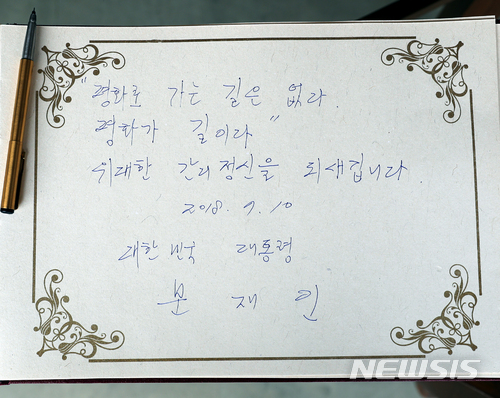 "평화로 가는 길은 없다.
평화가 길이다"
위대한 간디 정신을 되새깁니다.
2018. 7. 10
대한민국 대통령
문 재 인
NEWSIS